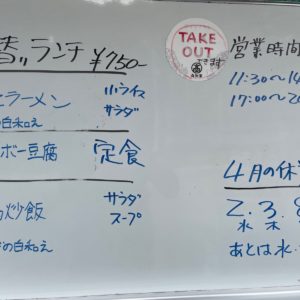 替ランチ ¥750-
ラーメン 小ライス
サラダ
の白和え
ボー豆腐 定食
炒飯 サラダ
スープ
の白和え
TAKE
OUT
できます
営業時間
11:30～14
17:00～20
4月の休
2.3.
水 木
あとは水